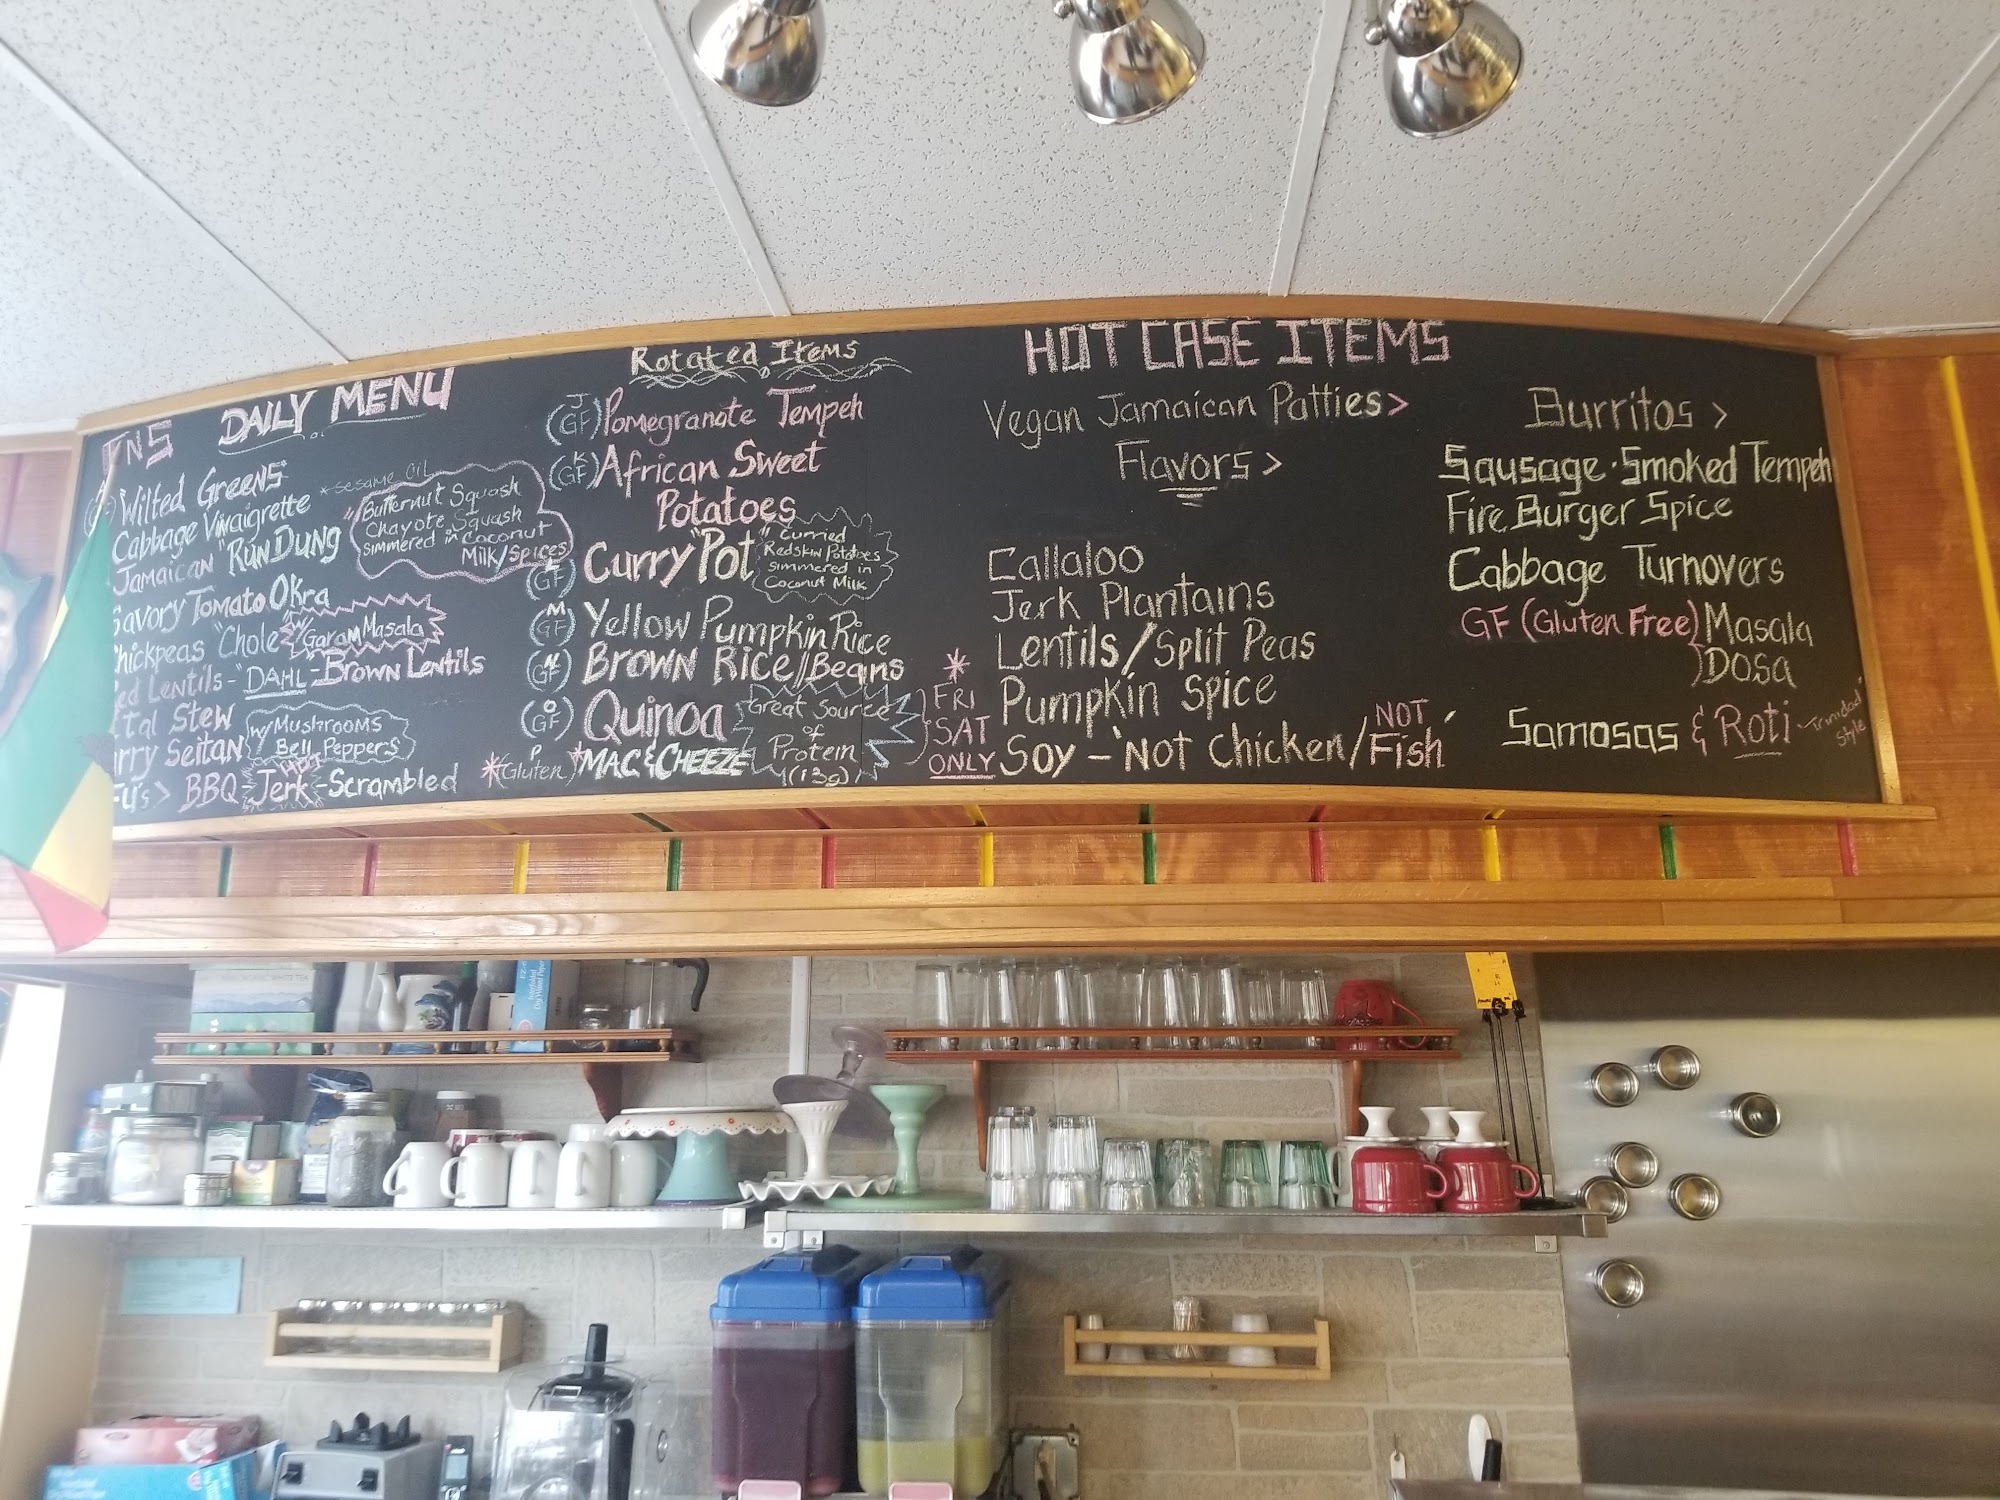 DAILY MENU
Wilted Greens
*sesame oil
Cabbage Vinaigrette
Jamaican "Run Dung
"Butternut Squash
Chayote Squash
simmered in Coconut
Milk/Spices
Savory Tomato Okra
Chickpeas "Chole
w/ Garam Masala
Red Lentils - "DAHL - Brown Lentils
Ital Stew
Curry Seitan
w/ Mushrooms
Bell Peppers
Fu's > BBQ - HOT Jerk - Scrambled
Rotated Items
J
(GF) Pomegranate Tempeh
K
(GF) African Sweet
Potatoes
(GF) Curry "Pot"
Curried
Redskin Potatoes
simmered in
Coconut Milk
M
(GF) Yellow Pumpkin Rice
N
(GF) Brown Rice//Beans
O
(GF) Quinoa
Great Source
of
Protein
(13g)
P
*(Gluten)* MAC & CHEEZE
*
FRI
SAT
ONLY
HOT CASE ITEMS
Vegan Jamaican Patties>
Flavors >
Callaloo
Jerk Plantains
Lentils/Split Peas
Pumpkin Spice
Soy - 'Not Chicken/NOT Fish'
Burritos >
Sausage · Smoked Tempeh
Fire Burger Spice
Cabbage Turnovers
GF (Gluten Free) Masala
Dosa
Samosas & Roti - Trinidad
Style